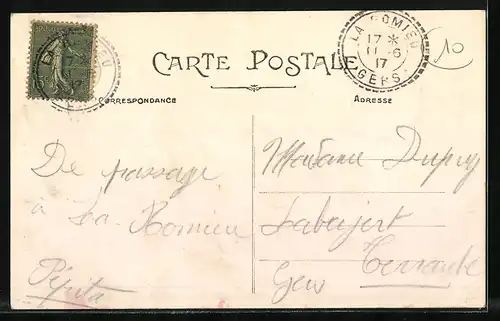 CARTE POSTALE
CORRESPONDANCE
ADRESSE
LA ROMIEU
17 *
11-6
17
GERS
10
De passage
à La Romieu
Pépita
Madame Dupuy
Gers